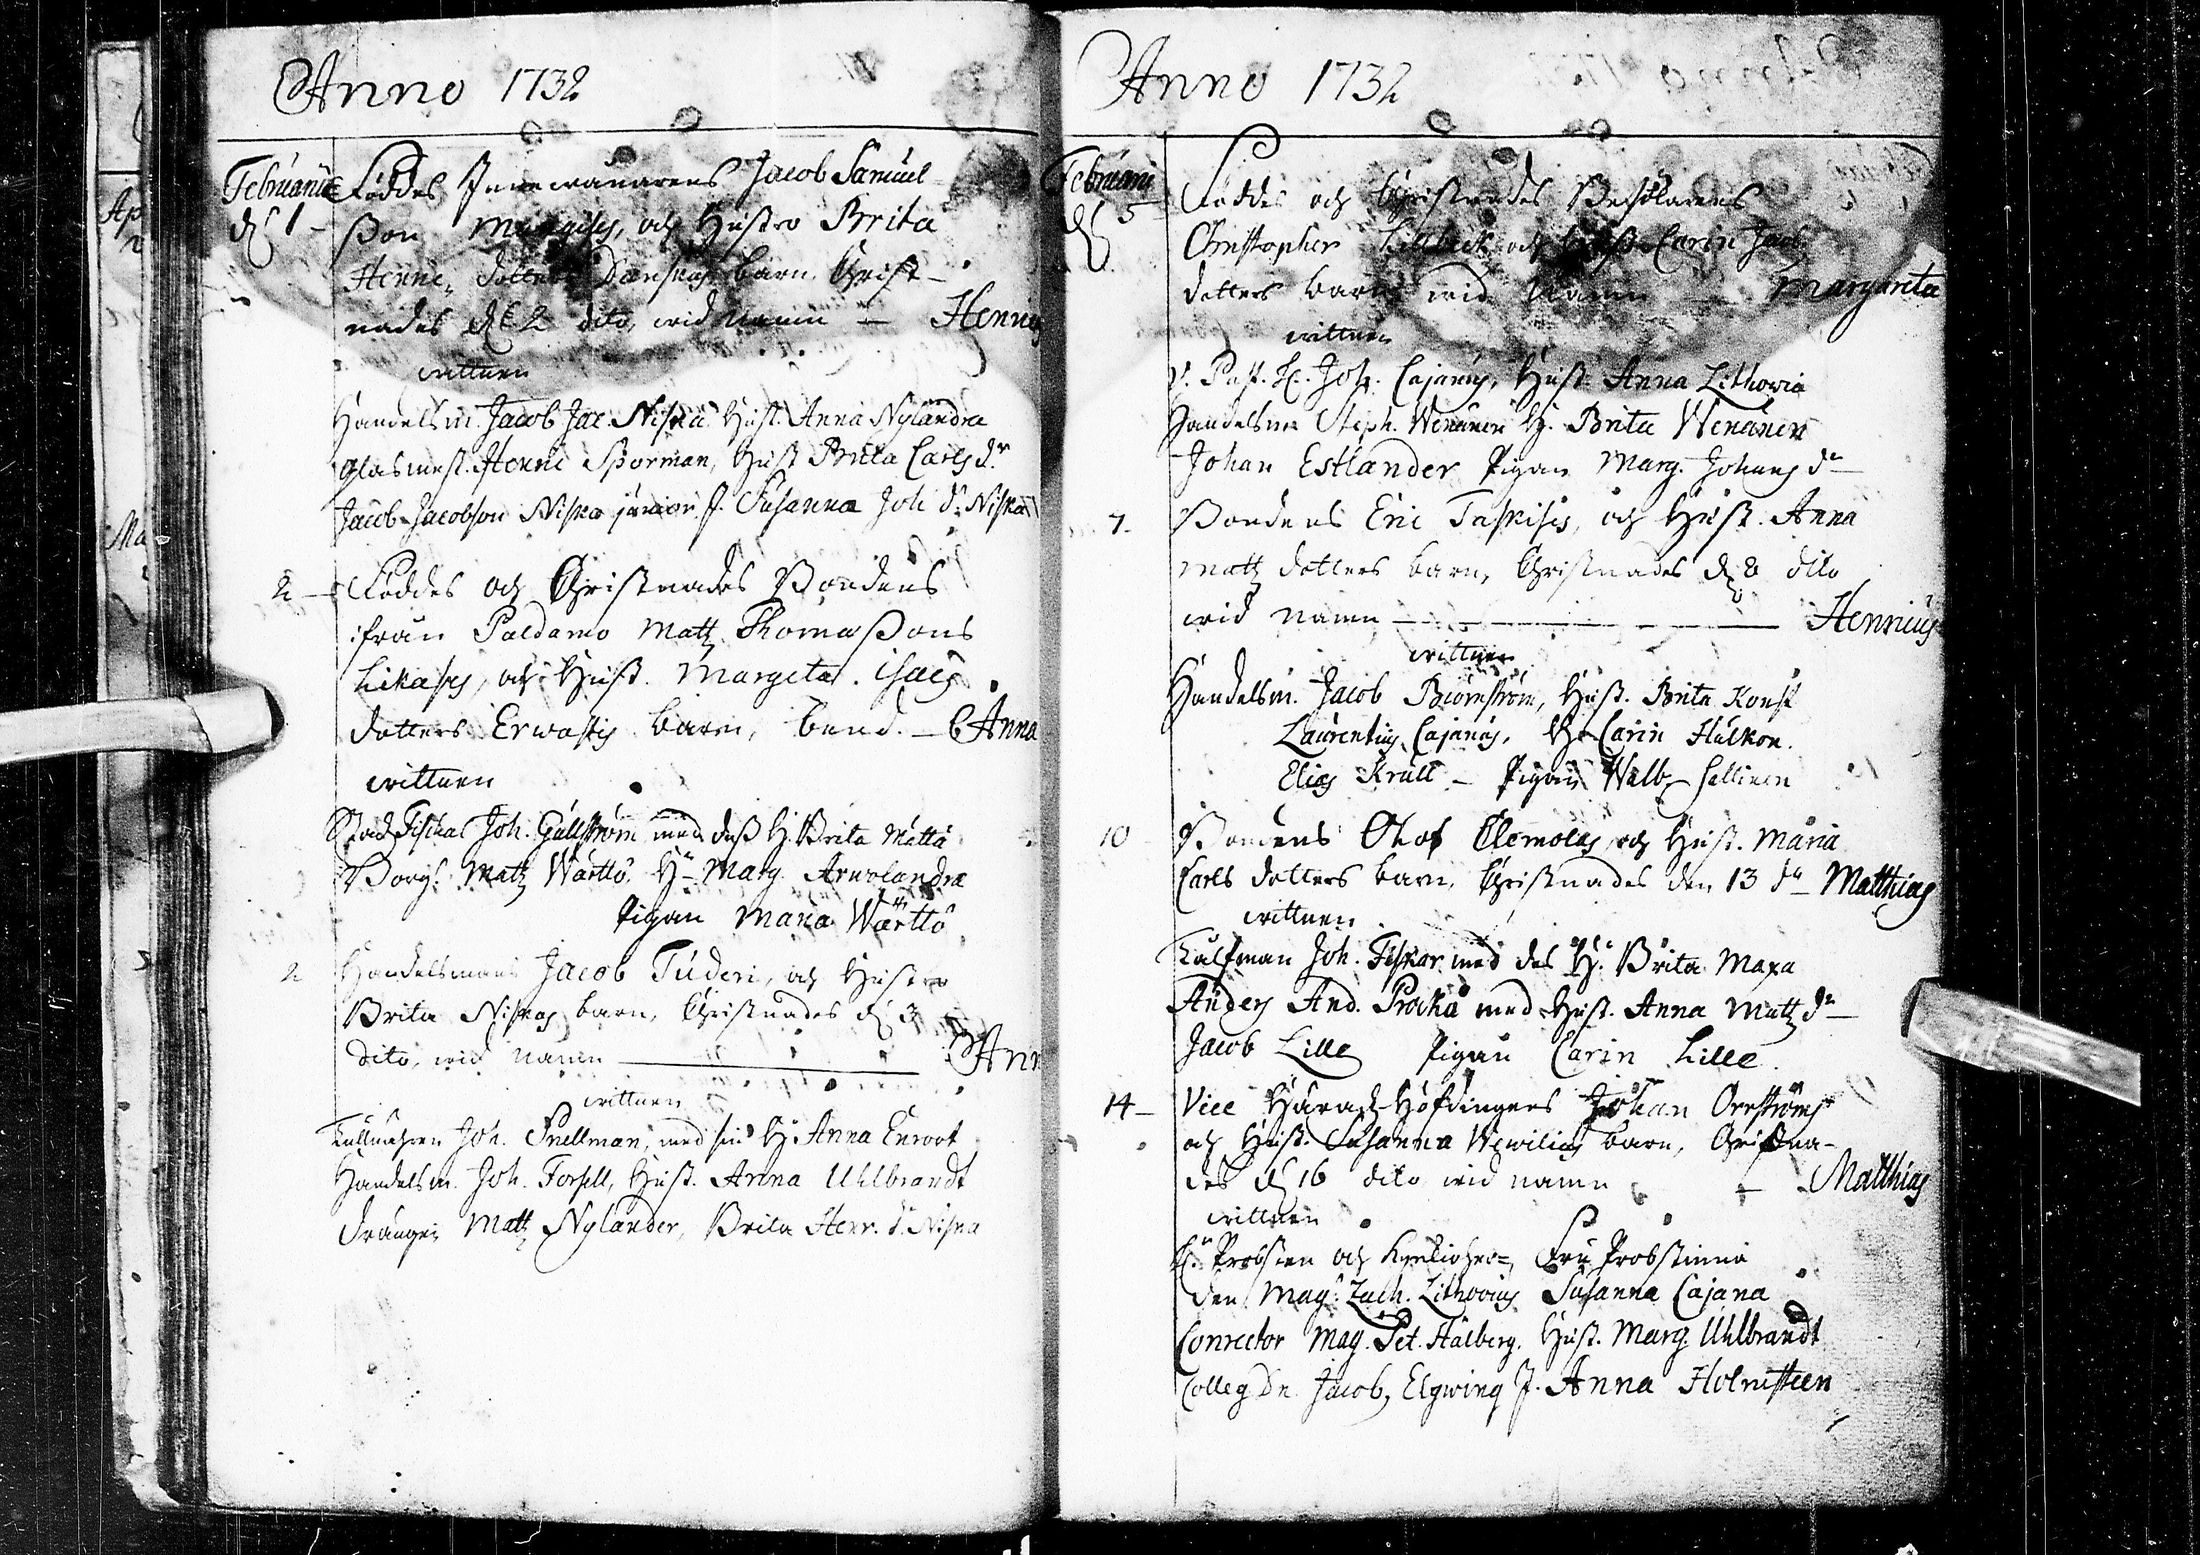 Anno 1732
Februarius Föddes Innewånarens Jacob Samuel
d. 1 - ßon och Hustro Brita
Henric dotters barn Christ-
nades d. 2 dito, wid namn — Henric
wittnen
Handelsm. Jacob Jac. Niska Hust. Anna Nylandra
Glasmest. Henric Sporman, Hust Brita Carls dr
Jacob Jacobson Niska junior. P. Susanna Joh. dr Niska
2 — Föddes och Christnades Bondens
ifrån Paldamo Matz Thomaßons
Likases, och Hust. Margeta Isacs
dotters Erwastis barn, bend. — Anna
wittnen
Stadz Fischal Joh. Gallström med deß H. Brita Matts
Borg. Matz Warttö Hu Marg Arwolandra
Pigan Maria Wärttö
2 Handelsmans Jacob Tuderi, och Hustro
Brita Niskas barn, Christnades d. 3
dito, wid namn — Ann
wittnen
Joh. Snellman, med sin H. Anna Enroot
Handelsm. Joh. Forsell, Hust. Anna Uhlbrandt
Drängen Matz Nylander, Brita Henr. dr Niska
Anno 1732
Februarii Föddes och Christnades Besökarens
d. 5 Christopher och Hust. Carin Jacobs
dotters barn wid namn — Margareta
wittnen
V. Past. H. Joh. Cajanus, Hust. Anna Lithovia
Handelsm Steph. Wenänen H. Brita Wenänen
Johan Estlander Pigan Marg. Johans dr
7. Bondens Eric Taskisis, och Hust. Anna
Matz dotters barn, Christnades d. 8 dito
wid namn — Henricus
wittnen
Handelsm. Jacob Biörnström, Hust. Brita Konst
Laurentius Cajanus, H. Carin Hulkon.
Elias Krull — Pigan Walb. Hellinen
10 Bondens Olof Clemolas, och Hust. Maria
Carls dotters barn, Christnades den 13 d— Matthias
wittnen
Kalfman Joh. Fiskar med des H. Brita Maxa
Anders And. Procka med Hust. Anna Matz dr
Jacob Lille Pigan Carin Lille
14 — Vice Häradz-Höfdingens Johan Orrströms
och Hust. Susanna Wewilias barn, Christna-
des d. 16 dito wid namn — Matthias
wittnen
H. Probsten och Kyrkioher= Fru Probstinna
den Mag. Zach. Lithovius Susanna Cajana
Conrector Mag. Pet. Hälberg. Hust. Marg. Uhlbrandt
Colleg Dn. Jacob, Elgwing J. Anna Holmsteen